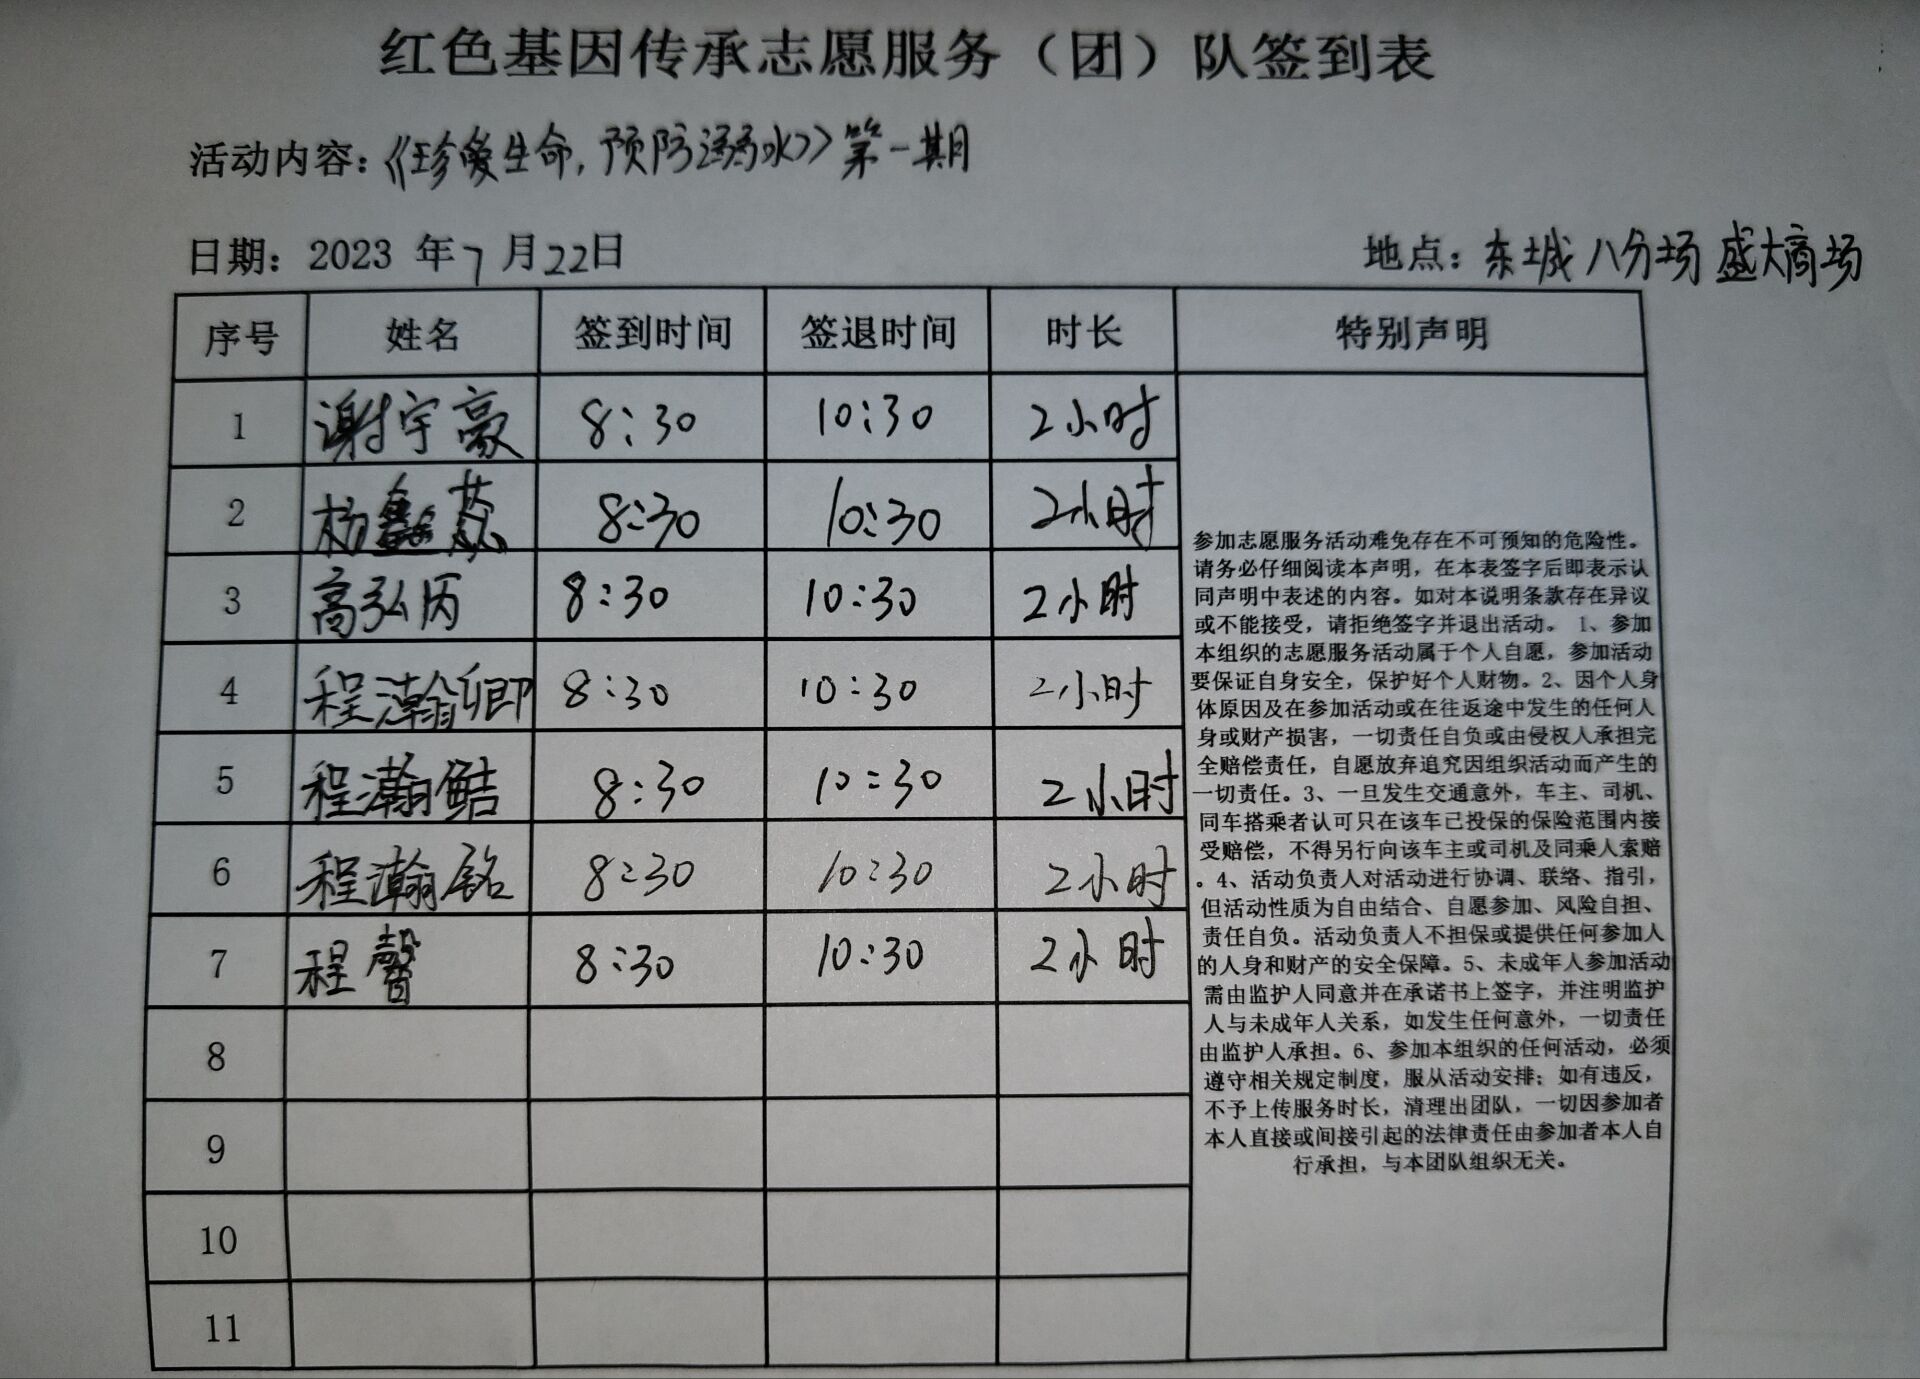 红色基因传承志愿服务（团）队签到表
活动内容：《珍爱生命，预防溺水》第一期
日期：2023 年 7 月 22日 地点：东城八分场 盛大商场
序号 姓名 签到时间 签退时间 时长 特别声明
1 谢宇豪 8:30 10:30 2小时
2 杨鑫蕊 8:30 10:30 2小时
3 高弘历 8:30 10:30 2小时
4 程瀚卿 8:30 10:30 2小时
5 程瀚 8:30 10:30 2小时
6 程瀚铭 8:30 10:30 2小时
7 程馨 8:30 10:30 2小时
8
9
10
11
参加志愿服务活动难免存在不可预知的危险性。
请务必仔细阅读本声明，在本表签字后即表示认
同声明中表述的内容。如对本说明条款存在异议
或不能接受，请拒绝签字并退出活动。 1、参加
本组织的志愿服务活动属于个人自愿，参加活动
要保证自身安全，保护好个人财物。2、因个人身
体原因及在参加活动或在往返途中发生的任何人
身或财产损害，一切责任自负或由侵权人承担完
全赔偿责任，自愿放弃追究因组织活动而产生的
一切责任。3、一旦发生交通意外，车主、司机、
同车搭乘者认可只在该车已投保的保险范围内接
受赔偿，不得另行向该车主或司机及同乘人索赔
。4、活动负责人对活动进行协调、联络、指引，
但活动性质为自由结合、自愿参加、风险自担、
责任自负。活动负责人不担保或提供任何参加人
的人身和财产的安全保障。5、未成年人参加活动
需由监护人同意并在承诺书上签字，并注明监护
人与未成年人关系，如发生任何意外，一切责任
由监护人承担。6、参加本组织的任何活动，必须
遵守相关规定制度，服从活动安排；如有违反，
不予上传服务时长，清理出团队，一切因参加者
本人直接或间接引起的法律责任由参加者本人自
行承担，与本团队组织无关。